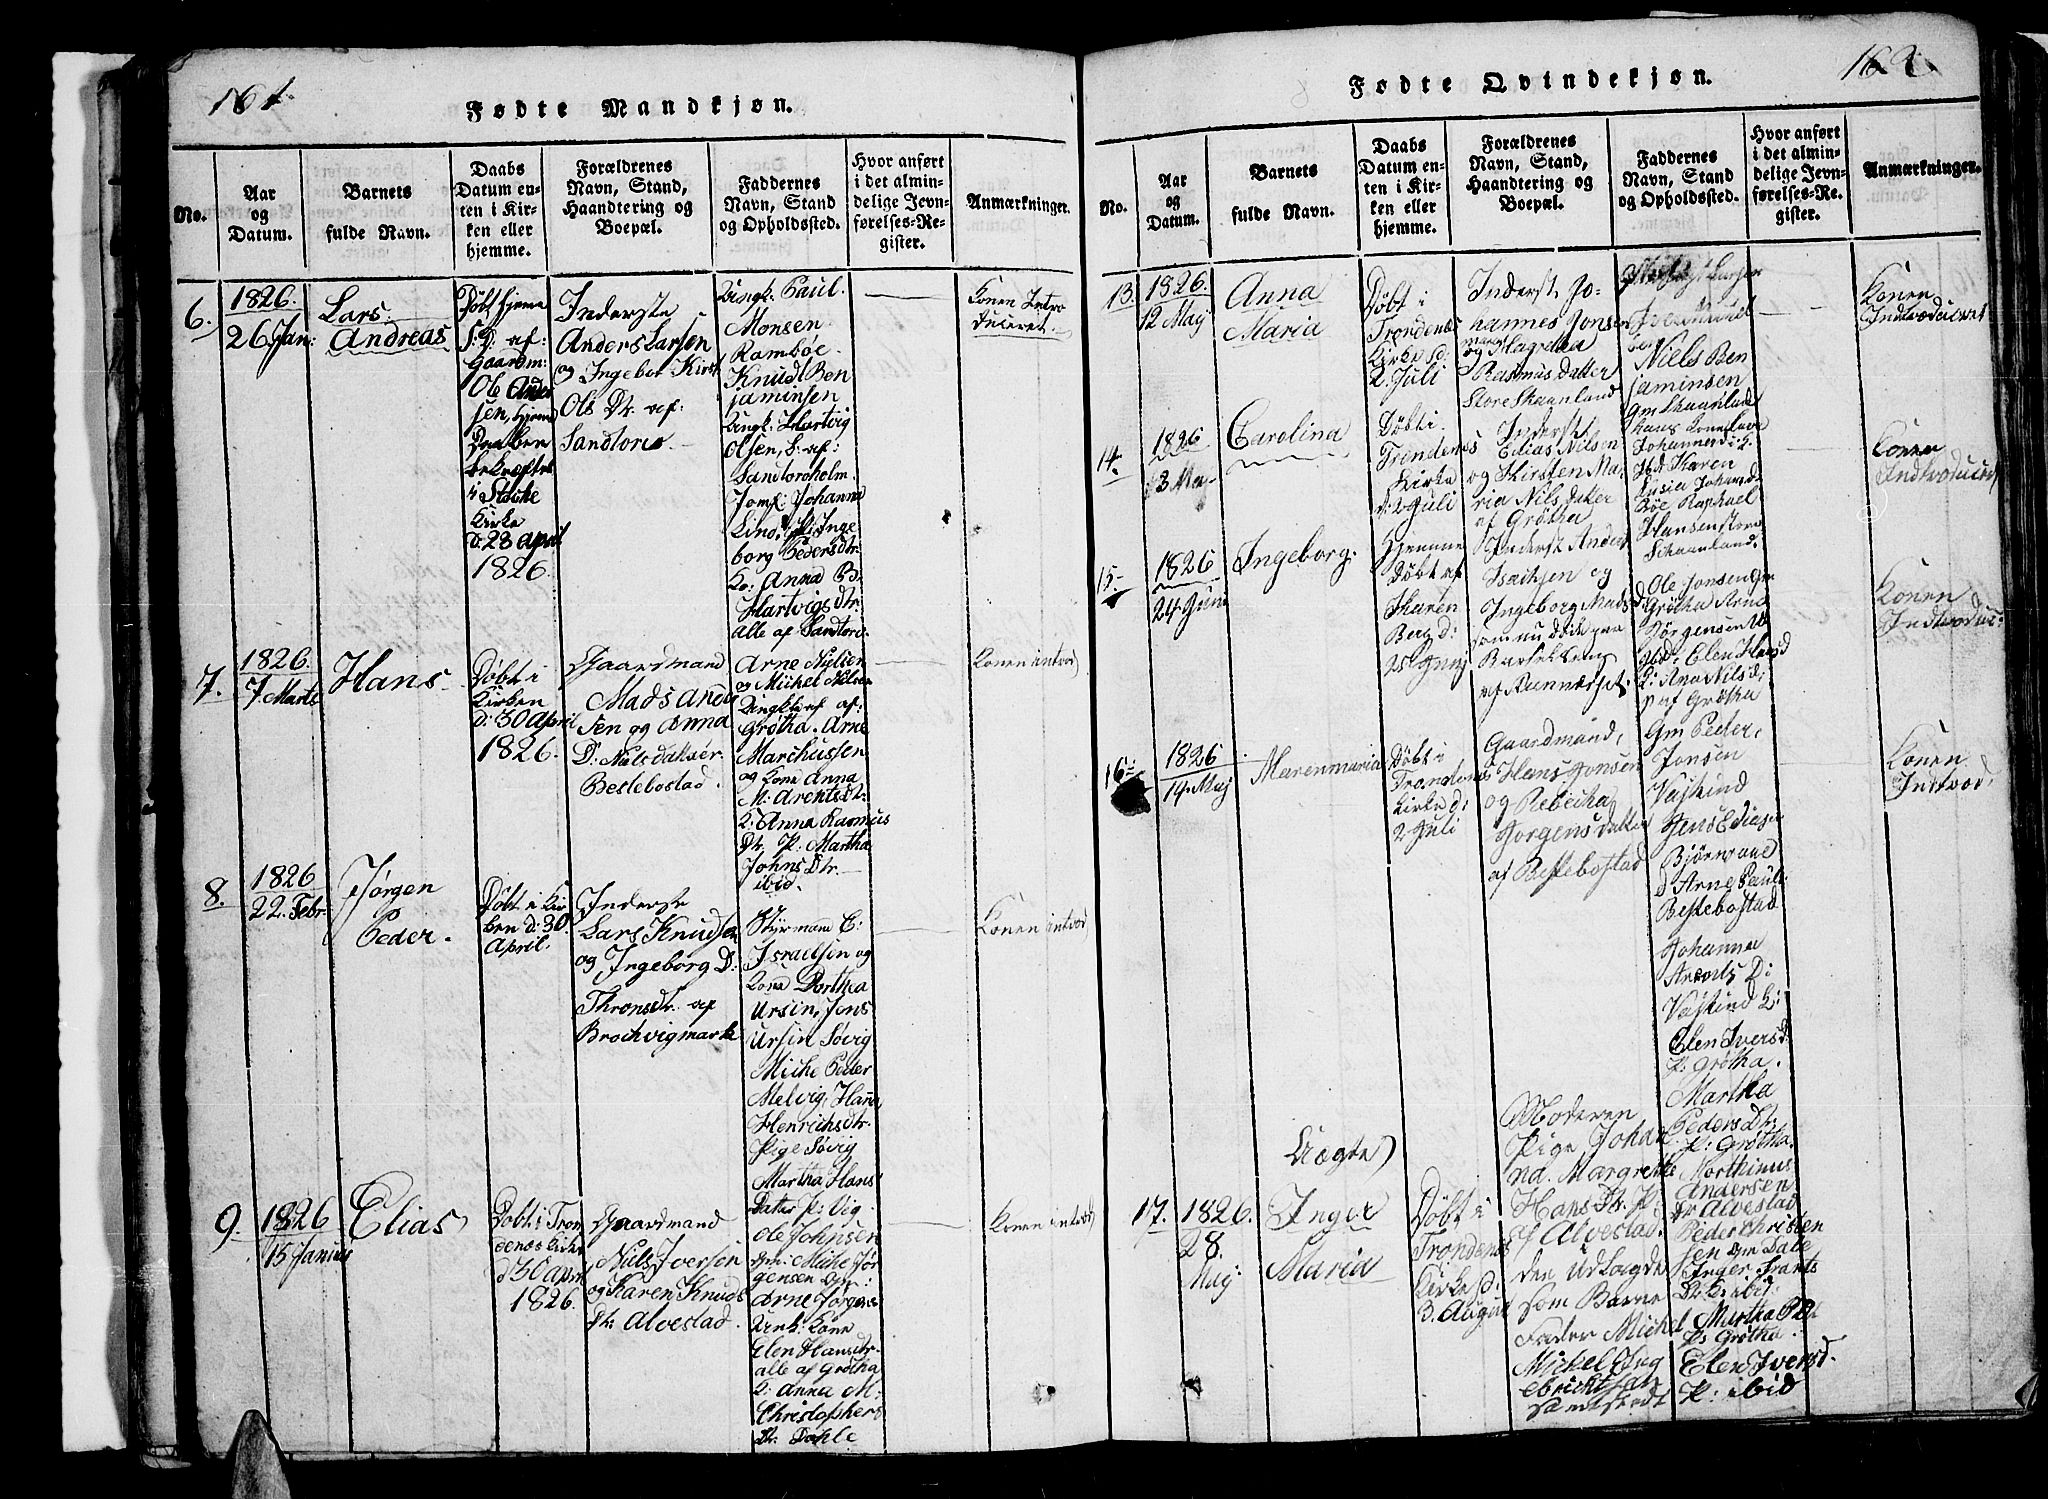 161.
Fødte Mandkjøn.
No.
Aar
og
Datum.
Barnets
fulde Navn.
Daabs
Datum en-
ten i Kir-
ken eller
hjemme.
Forældrenes
Navn, Stand,
Haandtering og
Boepæl.
Faddernes
Navn, Stand
og Opholdssted.
Hvor anført
i det almin-
delige Jevn-
førelses-Re-
gister.
Anmærkninger.
6.
1826.
26 Jan:
Lars
Andreas
Døbt hjeme
S: D. af:
Gaardm:
Ole Ander
sen, hjeme
Daaben
bekræftet
i
Kirke
d: 23 April
1826.
Inderste
Anders Larsen
og Ingebor Kirst
Ols Dr. af:
Sandtorg
Ungk: Paul
Monsen
Ramböe
Knud Ben
jaminsen
Ungk: Hartvig
Olsen, S: af:
Sandtorgholm.
Jomf: Johanna
Lind, P: Inge
borg Pedersdtr.
Ko: Anna B.
Hartvigsdtr.
alle af Sandtorg.
Konen Intro
duceret.
7.
1826.
7 Marts
Hans
Døbt i
Kirken
d: 30 April
1826.
Gaardmand
Mads Ande
sen og Anna
D: Nilsdatter
Bestebostad.
Arne Nielsen
og Michel Nilsen
Ungkarl af:
Grøtha. Arne
Marchussen
og Kone Anna
M: Arentsdt:
K: Anna Rasmus
Dr, P: Martha
Johns Dtr.
ibid.
Konen introd
8.
1826
22. Febr:
Jørgen
Peder.
Døbt i Kir
ken d: 30
April.
Inderste
Lars Knudsen
og Ingeborg D:
Thronsdtr. af
Brochvigmark
Styrmand E:
Israelsen og
Kona Dorthea
Ursin, Jens
Ursin Søvig
Miche Peder
Melvig, Hana
Henrichsdtr.
Pige Søvig
Martha Hans
Dater P: Vig
Konen introd
9.
1826
15 Januar
Elias
Døbt i Tron
denæs Kirke
d 30 April
1826.
Gaardmand
Nils Iversen
og Karen Knuds
Dtr. Alvestad.
Ole Johnsen
Gm: Miche Jør
gensen Gm:
Arne Jørgens
Ungk: Kone
Elen Hansdtr.
alle af Grøtha
K: Anna M:
Christophers
Dr. Dahle
Konen introd
162.
Fødte Qvindekjøn.
No.
Aar
og
Datum.
Barnets
fulde Navn.
Daabs
Datum en-
ten i Kir-
ken eller
hjemme.
Forældrenes
Navn, Stand,
Haandtering og
Boepæl.
Faddernes
Navn, Stand
og Opholdssted.
Hvor anført
i det almin-
delige Jevn-
førelses-Re-
gister.
Anmærkninger.
13.
1826.
12 Maij
Anna
Maria
Døbt i
Trondenæs
Kirke d:
2. Juli
Inderst Jo-
hannes Jonsen
og Magretha
Rasmusdatter
Store Skaanland
Larsen
Niels Ben
jaminsen
Gm Skaanland
Konen
Indtroduceret
14.
1826
3 Maj
Carolina
Døbt i
Trondenæs
Kirke
d: 2 Juli
Inderst
Elias Nilsen
og Kirsten Ma
ria Nilsdatter
af Grøtha
Hans
Johannes
Karen
Lusia Johansd
Böe Raphael
Hansen store
Schaanland.
Konen
Indtroducer
15.
1826
24 Juni
Ingeborg.
Hjemme
Døbt af
Karen
Berg d:
25 Junij
Inderst Anders
Isachsen og
Ingeborg Mads
som nu døde paa
Barselseng
af Runnæsset.
Ole Jonsen Gm
Grøtha Arne
Jørgensen U
ibd: Elen Hansd
K: Ana Nilsd:
P af Grøtha
Konen
Indtroduc:
16.
1826
19. Maij
Maren maria
Døbt i
Trondenæs
Kirke d:
2 Juli
Gaardmand,
Hans Jonsen
og Rebecka
Jørgensdatter
af Bestebostad
Gm Peder,
Jonsen
Vaskind
Jens Eliasen
Björnraae
d Arne Paul:
Bestebostad
Johanna
Arents D:
Vaskind K:
Elen Iversd:
P: Grøtha.
Martha
Peders Dt:
P: Grøtha.
Konen
Indtrod,
17.
1826.
28.
Maij
Uægte
Inger
Maria
Døbt i
Trondenæs
Kirke d:
3. August
Moderen
Pige Johan
na. Margrethe
Hans Dr. P:
af Alvestad.
den Udlagde
som Barne
Fader Michel
Michel Ing
ebrichtsen
Sandstedt
Morthinus
Andersen
Dr Alvestad
Peder Christen
sen Gm Dale
Inger Frants
Dr. K: ibid:
Martha PDr
P: Grøtha.
Elen Iversd.
P: ibid